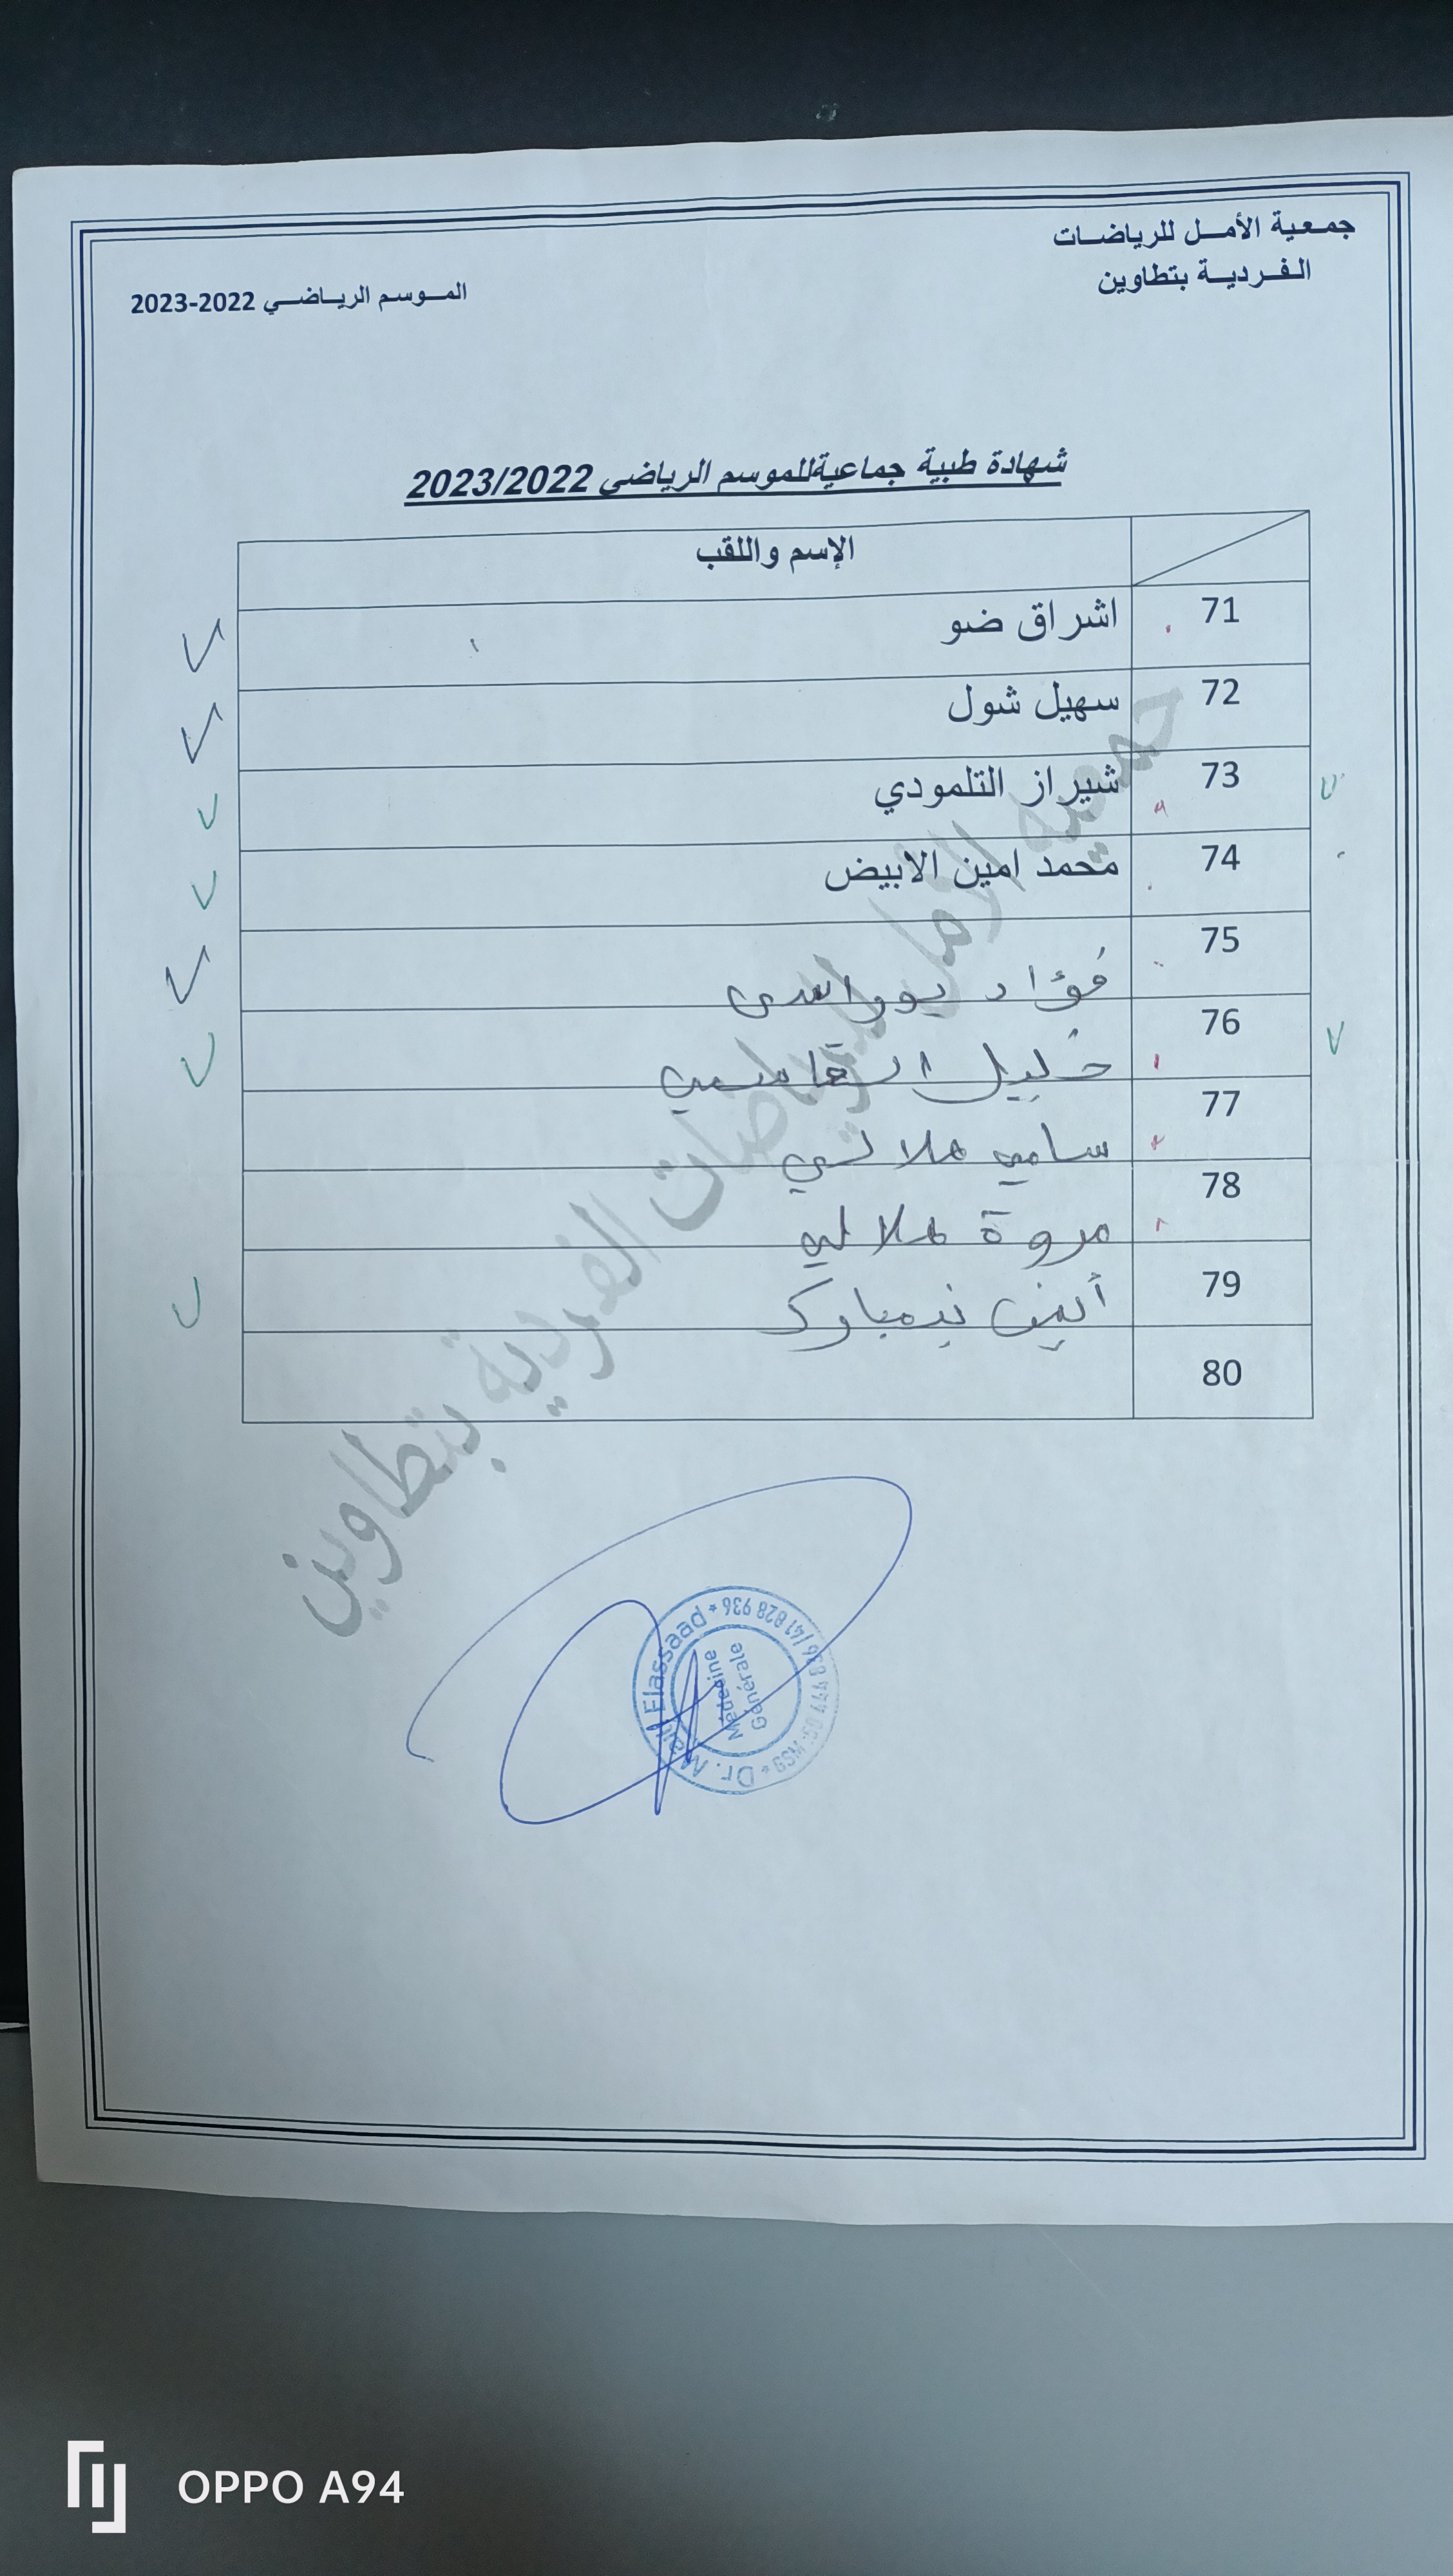 جمعية الأمل للرياضات
الفردية بتطاوين
الموسم الرياضي 2022-2023
شهادة طبية جماعيةللموسم الرياضي 2023/2022
الإسم واللقب
71 اشراق ضو
72 سهيل شول
73 شيراز التلمودي
74 محمد امين الابيض
75 فؤاد بوراسي
76 خليل القاسمي
77 سامي هلالي
78 مروة هلالي
79 أيمن بنمبارك
80
جمعية الأمل للرياضات الفردية بتطاوين
Dr. Elassaad
Médecine
Générale
OPPO A94